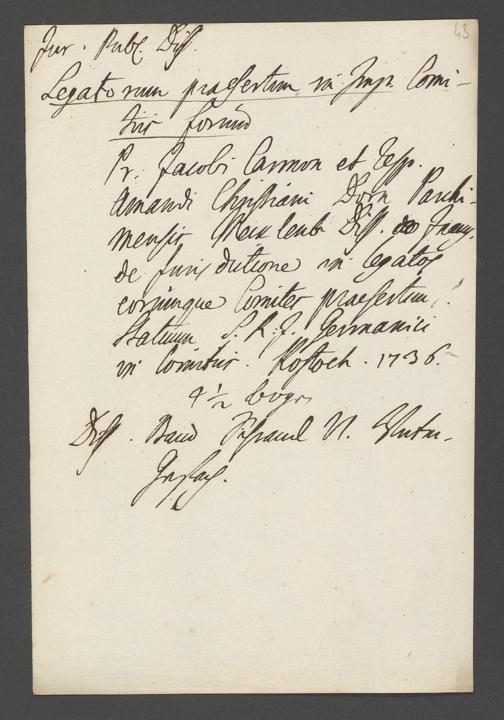 43
Jur. Publ. Diss.
Legatorum praesertim in Imp. Comi-
tiis forum
Pr. Jacobi Carmon et Resp.
Amandi Christiani Dorn Parchi-
mensis Mecklenb. Diss. Inaug.
de Jurisdictione in legatos
eorumque Comites praesertim
Statuum S. R. J. Germanici
in Comitiis. Rostoch. 1736.
4 1/2 bogen
Diss. Band